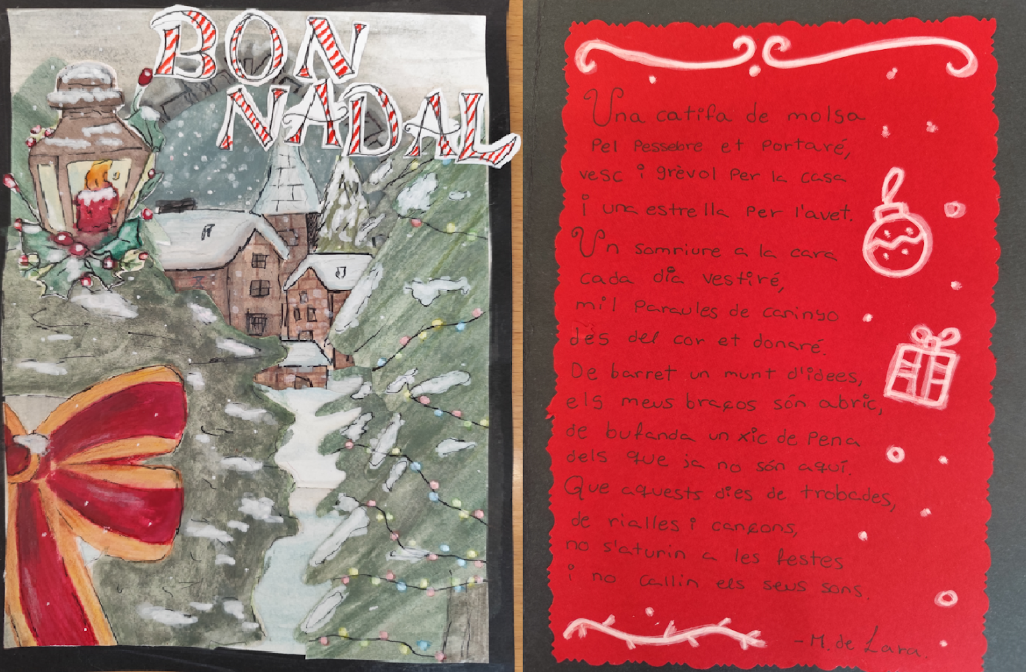 BON
NADAL
Una catifa de molsa
pel pessebre et portaré,
vesc i grèvol per la casa
i una estrella per l'avet.
Un somriure a la cara
cada dia vestiré,
mil paraules de carinyo
dès del cor et donaré.
De barret un munt d'idees,
els meus braços són abric,
de bufanda un xic de pena
dels que ja no són aquí.
Que aquests dies de trobades,
de rialles i cançons,
no s'aturin a les festes
i no callin els seus sons.
-M. de Lara.